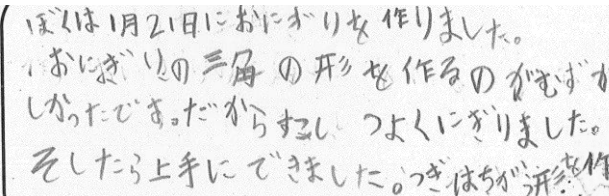 ぼくは1月21日におにぎりを作りました。
おにぎりの三角の形を作るのがむずか
しかったです。だからすこし つよくにぎりました。
そしたら上手にできました。つぎはちがう形を作